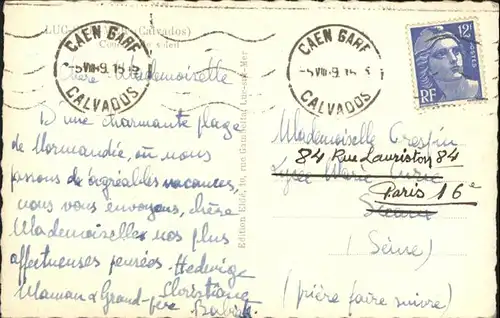 LUC-SUR-MER (Calvados)
Coucher de soleil
CAEN GARE
-5 VIII-9
CALVADOS
CAEN GARE
-5 VIII-9
CALVADOS
12F
POSTES
RF
Chère Mademoiselle
D'une charmante plage
de Normandie, où nous
passons de agréables vacances,
nous vous envoyons, chère
Mademoiselle nos plus
affectueuses pensées. Hedwige
Christiane
Maman & Grand-père
Edition Elide, 10, rue Gambetta, Luc-sur-Mer
Mademoiselle Crespin
84 Rue Lauriston 84
Lycée Marie Curie
Paris 16e
Sceaux
(Seine)
(prière faire suivre)